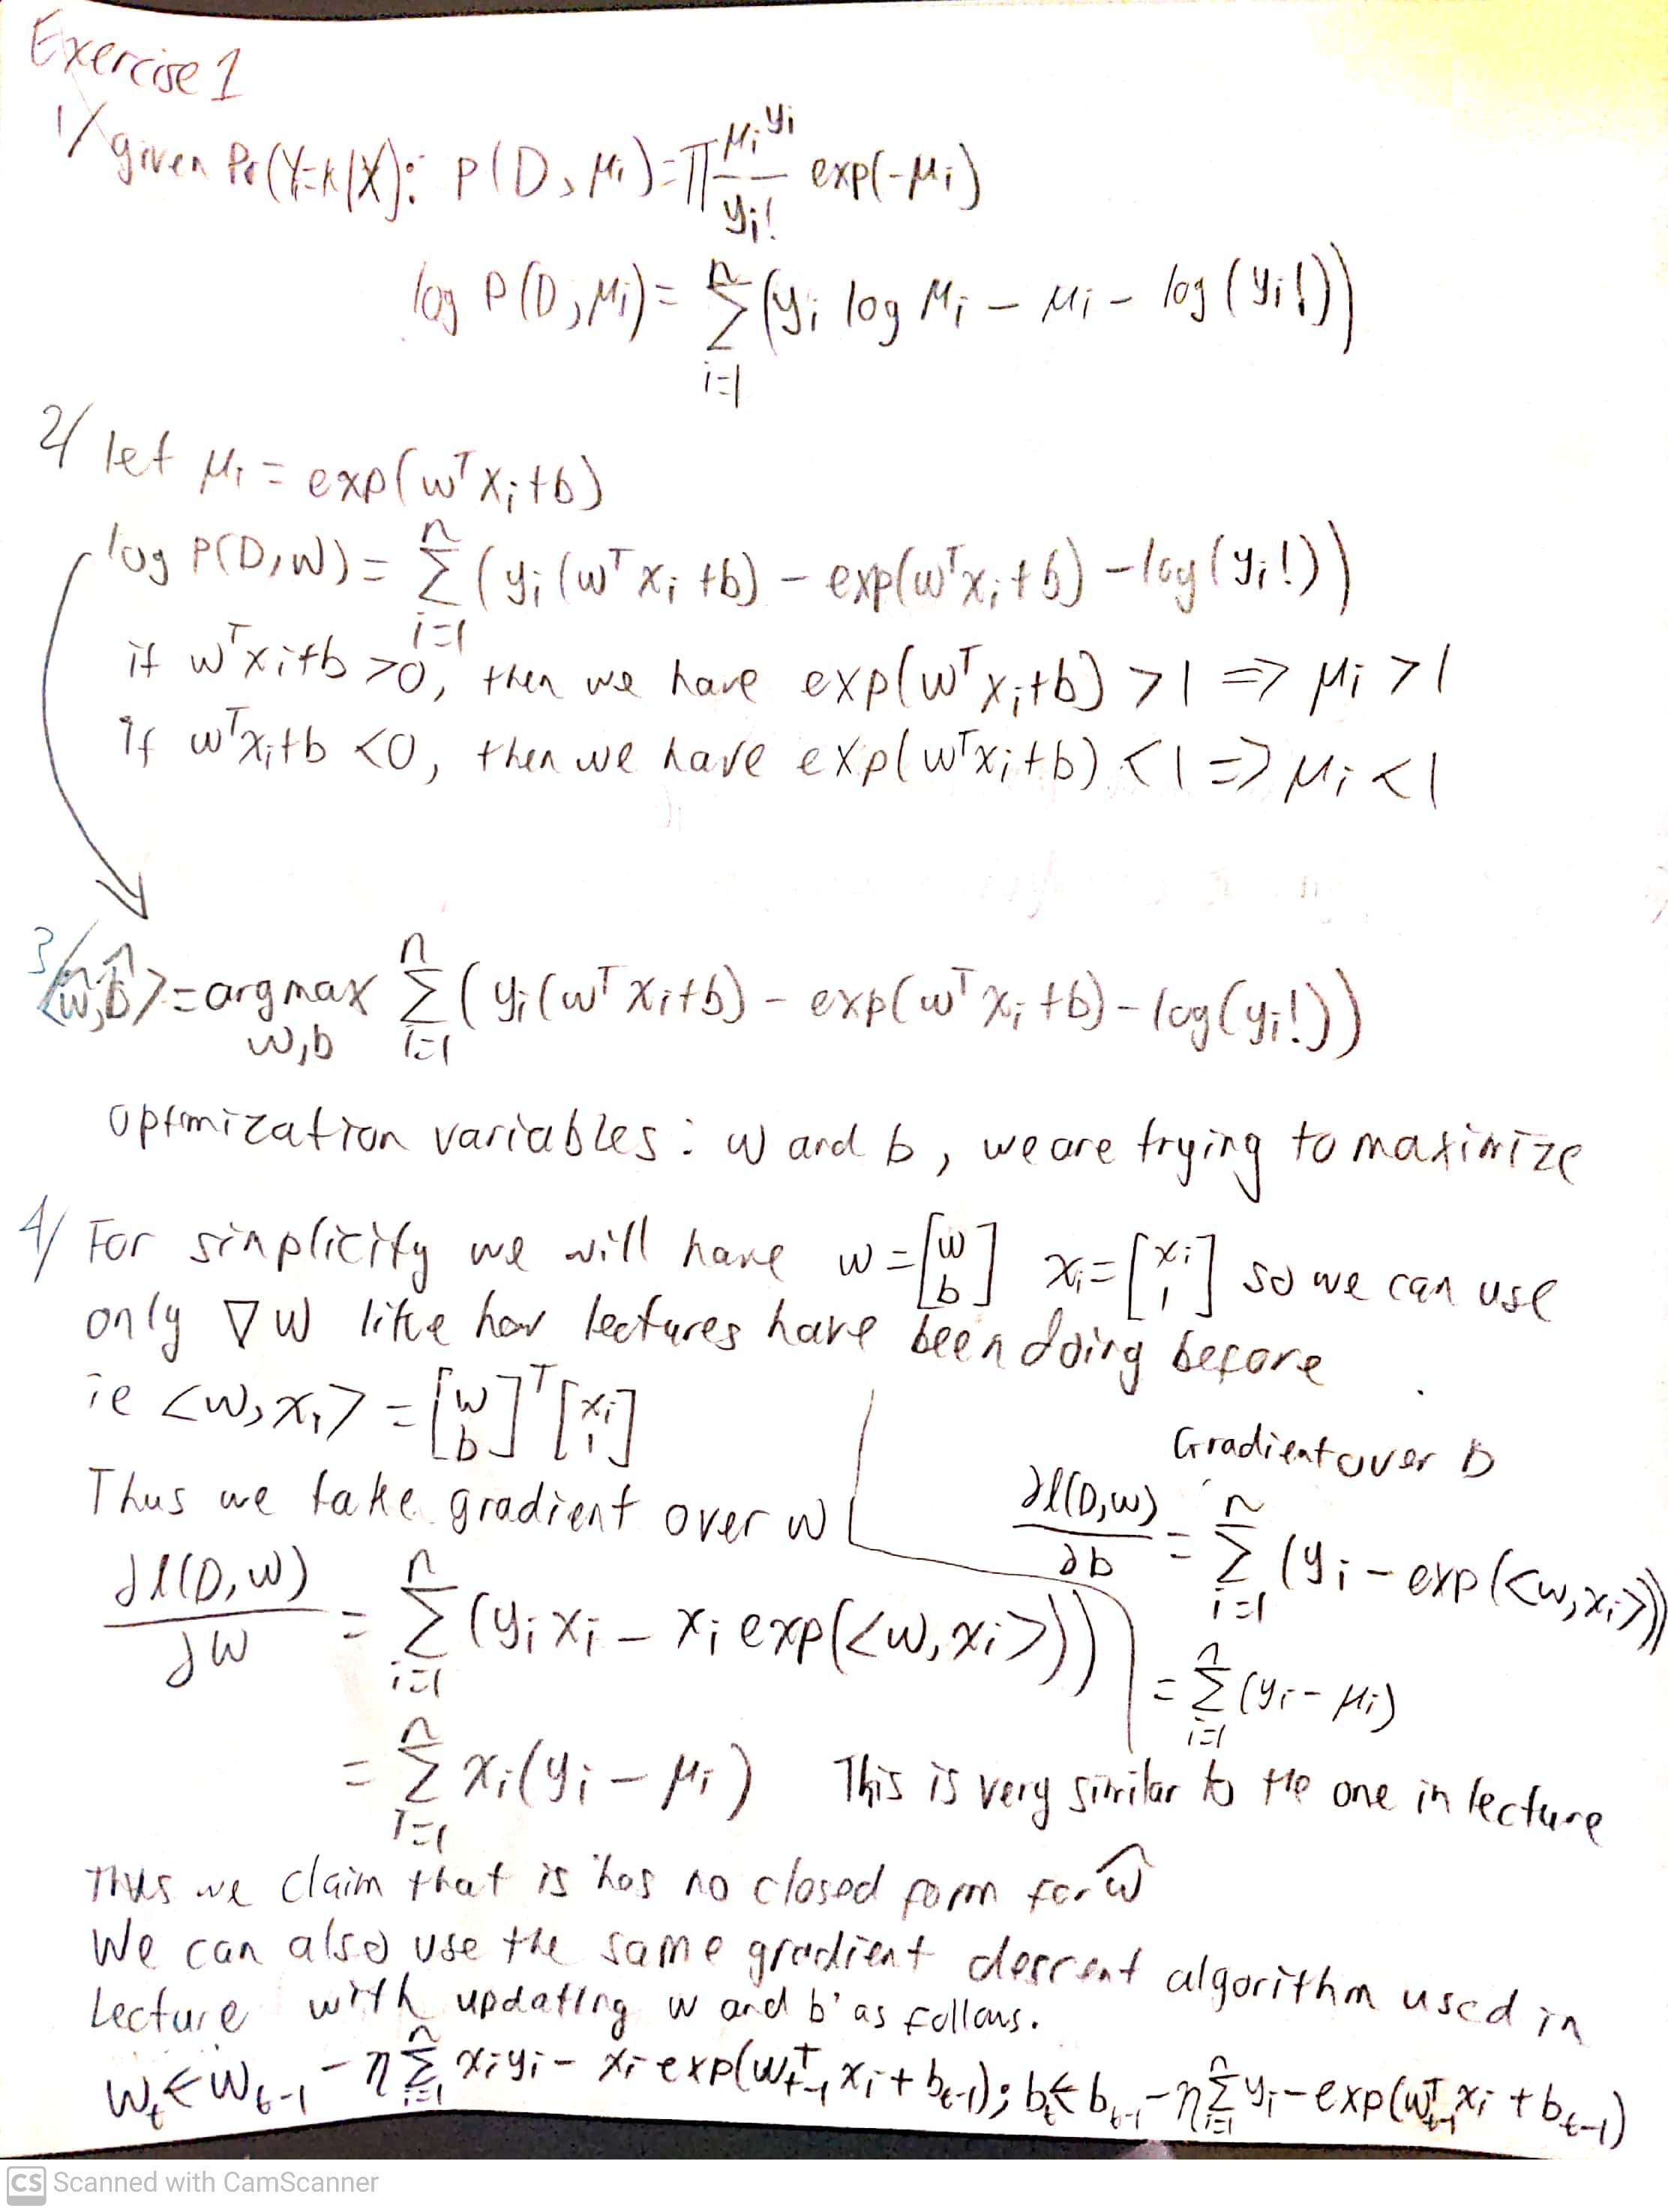 Exercise 1
1/ given Pr(Y=k|X): P(D, μi) = ∏ μi^yi / yi! exp(-μi)
log P(D, μi) = Σ_{i=1}^n (yi log μi - μi - log(yi!))
2/ let μi = exp(w^T xi + b)
log P(D, W) = Σ_{i=1}^n (yi(w^T xi + b) - exp(w^T xi + b) - log(yi!))
if w^T xi + b > 0, then we have exp(w^T xi + b) > 1 => μi > 1
if w^T xi + b < 0, then we have exp(w^T xi + b) < 1 => μi < 1
3/ <ŵ, b̂> = argmax_{w,b} Σ_{i=1}^n (yi(w^T xi + b) - exp(w^T xi + b) - log(yi!))
optimization variables: w and b, we are trying to maximize
4/ For simplicity we will have w = [w b] xi = [xi 1] so we can use
only ∇w like how lectures have been doing before
ie <w, xi> = [w b]^T [xi 1]
Thus we take gradient over w
∂l(D, W) / ∂W = Σ_{i=1}^n (yi xi - xi exp(<w, xi>))
= Σ_{i=1}^n xi(yi - μi) This is very similar to the one in lecture
Gradient over b
∂l(D, w) / ∂b = Σ_{i=1}^n (yi - exp(<w, xi>))
= Σ_{i=1}^n (yi - μi)
Thus we claim that is has no closed form for ŵ
We can also use the same gradient descent algorithm used in
Lecture with updating w and b as follows.
w_t ← w_{t-1} - η Σ_{i=1}^n xi yi - xi exp(w_{t-1}^T xi + b_{t-1}); b_t ← b_{t-1} - η Σ_{i=1}^n yi - exp(w_{t-1}^T xi + b_{t-1})
CS Scanned with CamScanner